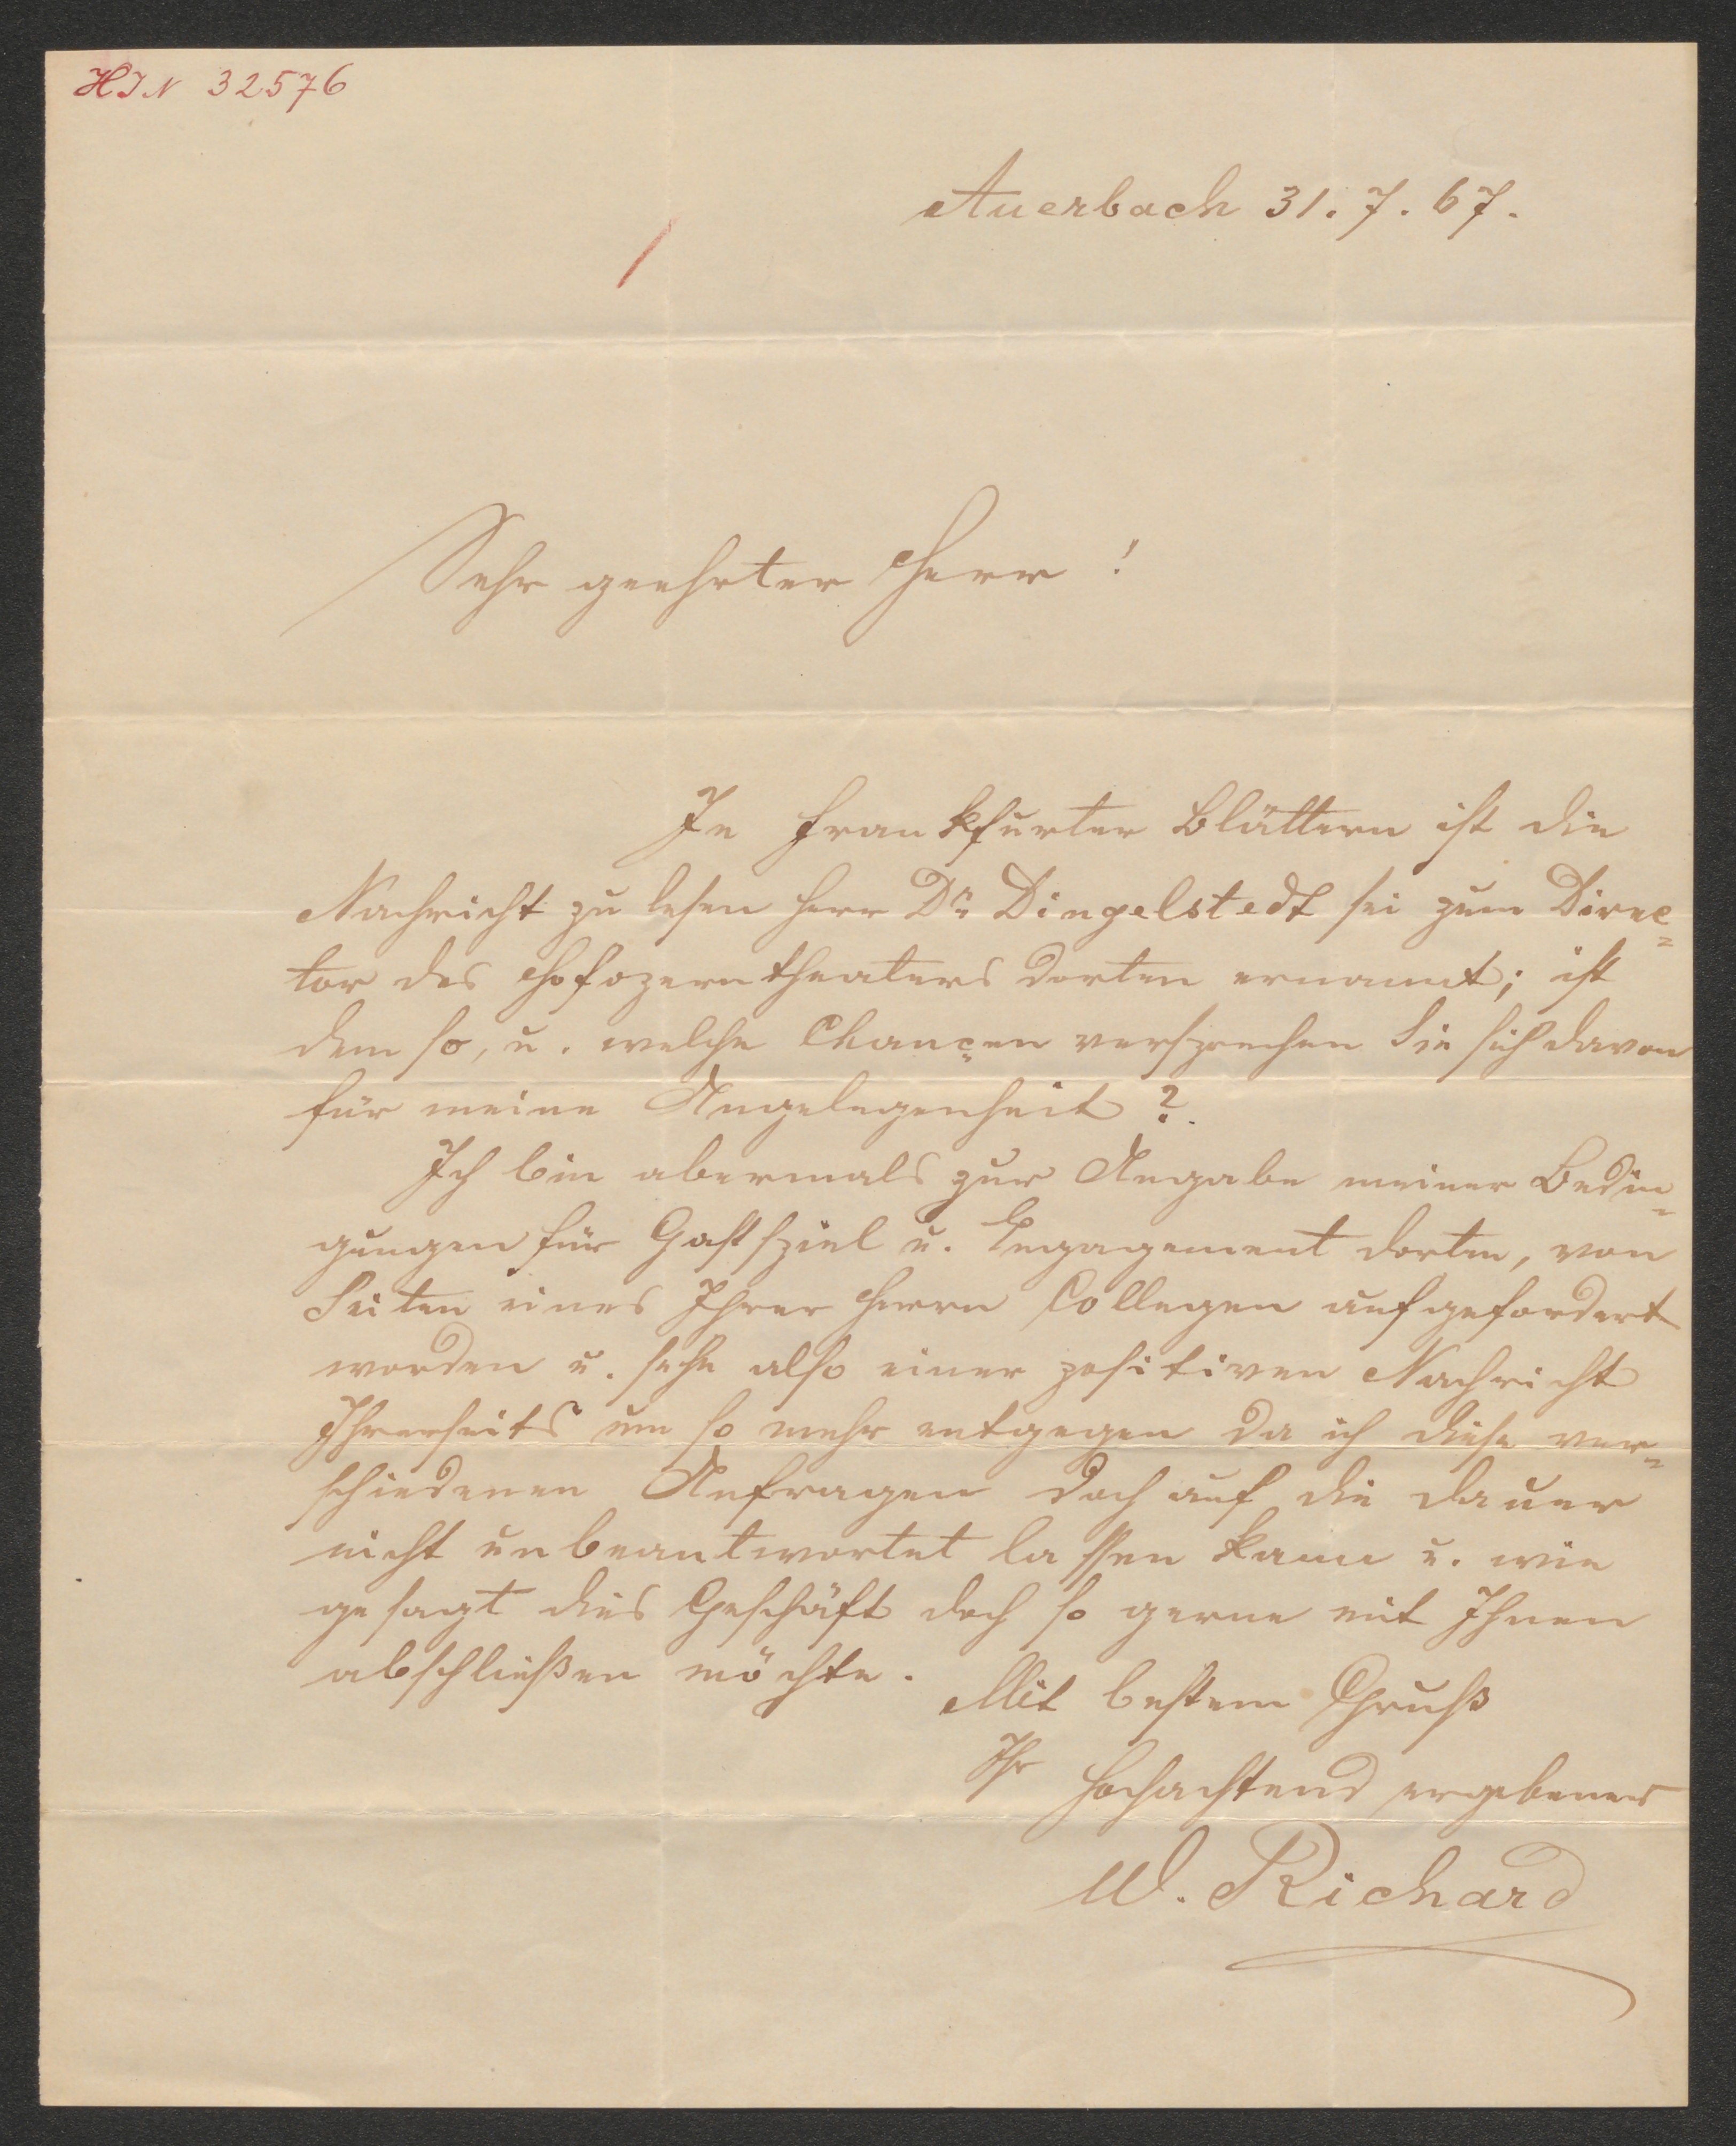 HIN 32576
Auerbach 31. 7. 67.
Sehr geehrter Herr!
In Frankfurter Blättern ist die
Nachricht zu lesen Herr Dr. Dingelstedt sei zum Direc=
tor des Hofoperntheaters dorten ernannt; ist
dem so, u. welche Chançen versprechen Sie sich davon
für meine Angelegenheit?
Ich bin abermals zur Angabe meiner Bedin=
gungen für Gastspiel u. Engagement dorten, von
Seiten eines Ihrer Herrn Collegen aufgefordert
worden u. sehe also einer positiven Nachricht
Ihrerseits um so mehr entgegen da ich diese ver=
schiedenen Anfragen doch auf die dauer
nicht unbeantwortet lassen kann u. wie
gesagt dies Geschäft doch so gerne mit Ihnen
abschließen möchte.
Mit bestem Gruß
Ihr hochachtend ergebener
W. Richard